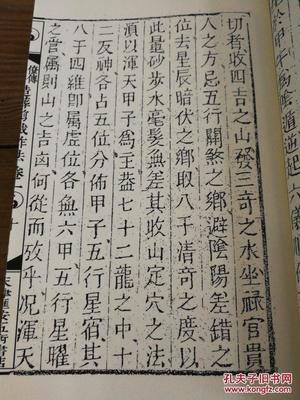 切皆收四吉之山發三奇之水坐祿官貴
人之方忌五行關煞之鄉避陰陽差錯之
位去星辰暗伏之鄉取八干清奇之度以
此量砂步水毫髮無差其收山定穴之法
須以渾天甲子為主蓋七十二龍之中十
二支神各占五位分佈甲子五行星宿其
八干四維卽屬虛位各無六甲五行星曜
之管屬則山之吉凶何從而攷乎況渾天